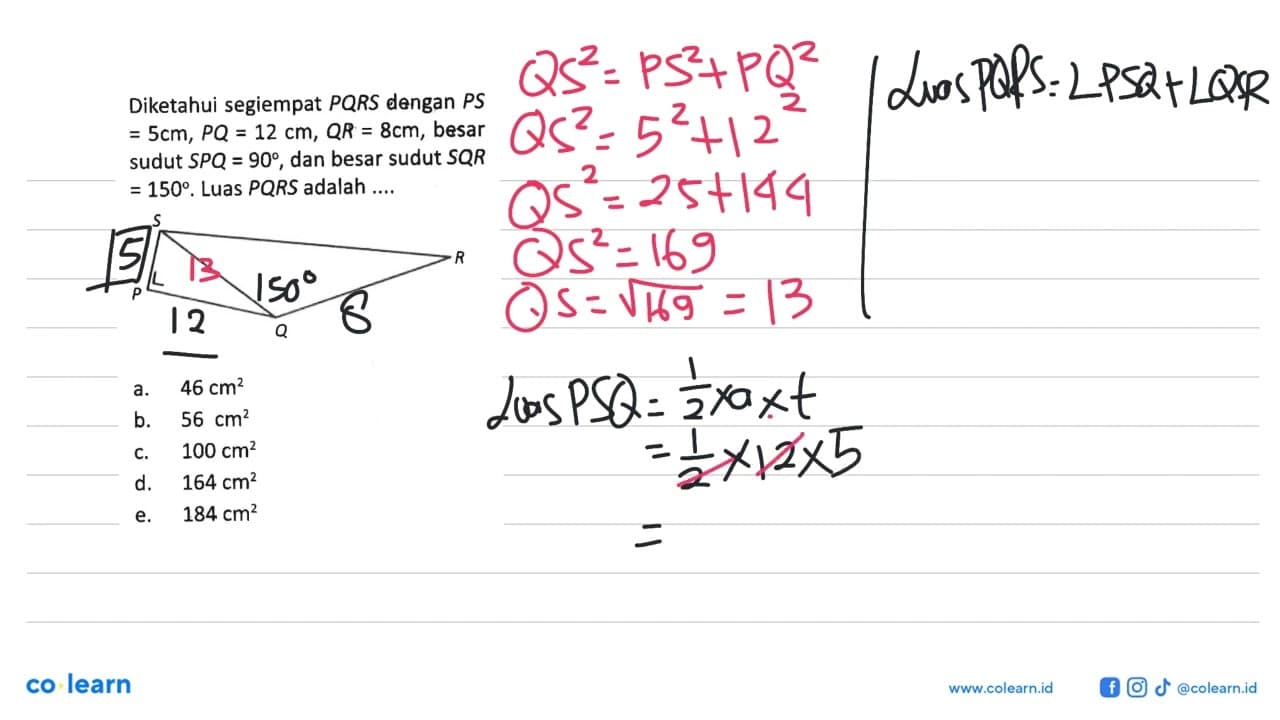 Diketahui segiempat PQRS dengan PS
= 5cm, PQ = 12 cm, QR = 8cm, besar
sudut SPQ = 90°, dan besar sudut SQR
= 150°. Luas PQRS adalah ....
S
5
13
150°
R
P
12
Q
8
a. 46 cm²
b. 56 cm²
c. 100 cm²
d. 164 cm²
e. 184 cm²
QS² = PS² + PQ²
QS² = 5² + 12²
QS² = 25 + 144
QS² = 169
QS = √169 = 13
Luas PSQ = 1/2 x a x t
= 1/2 x 12 x 5
=
Luas PQRS = LPSQ + LQSR
co learn
www.colearn.id
@colearn.id